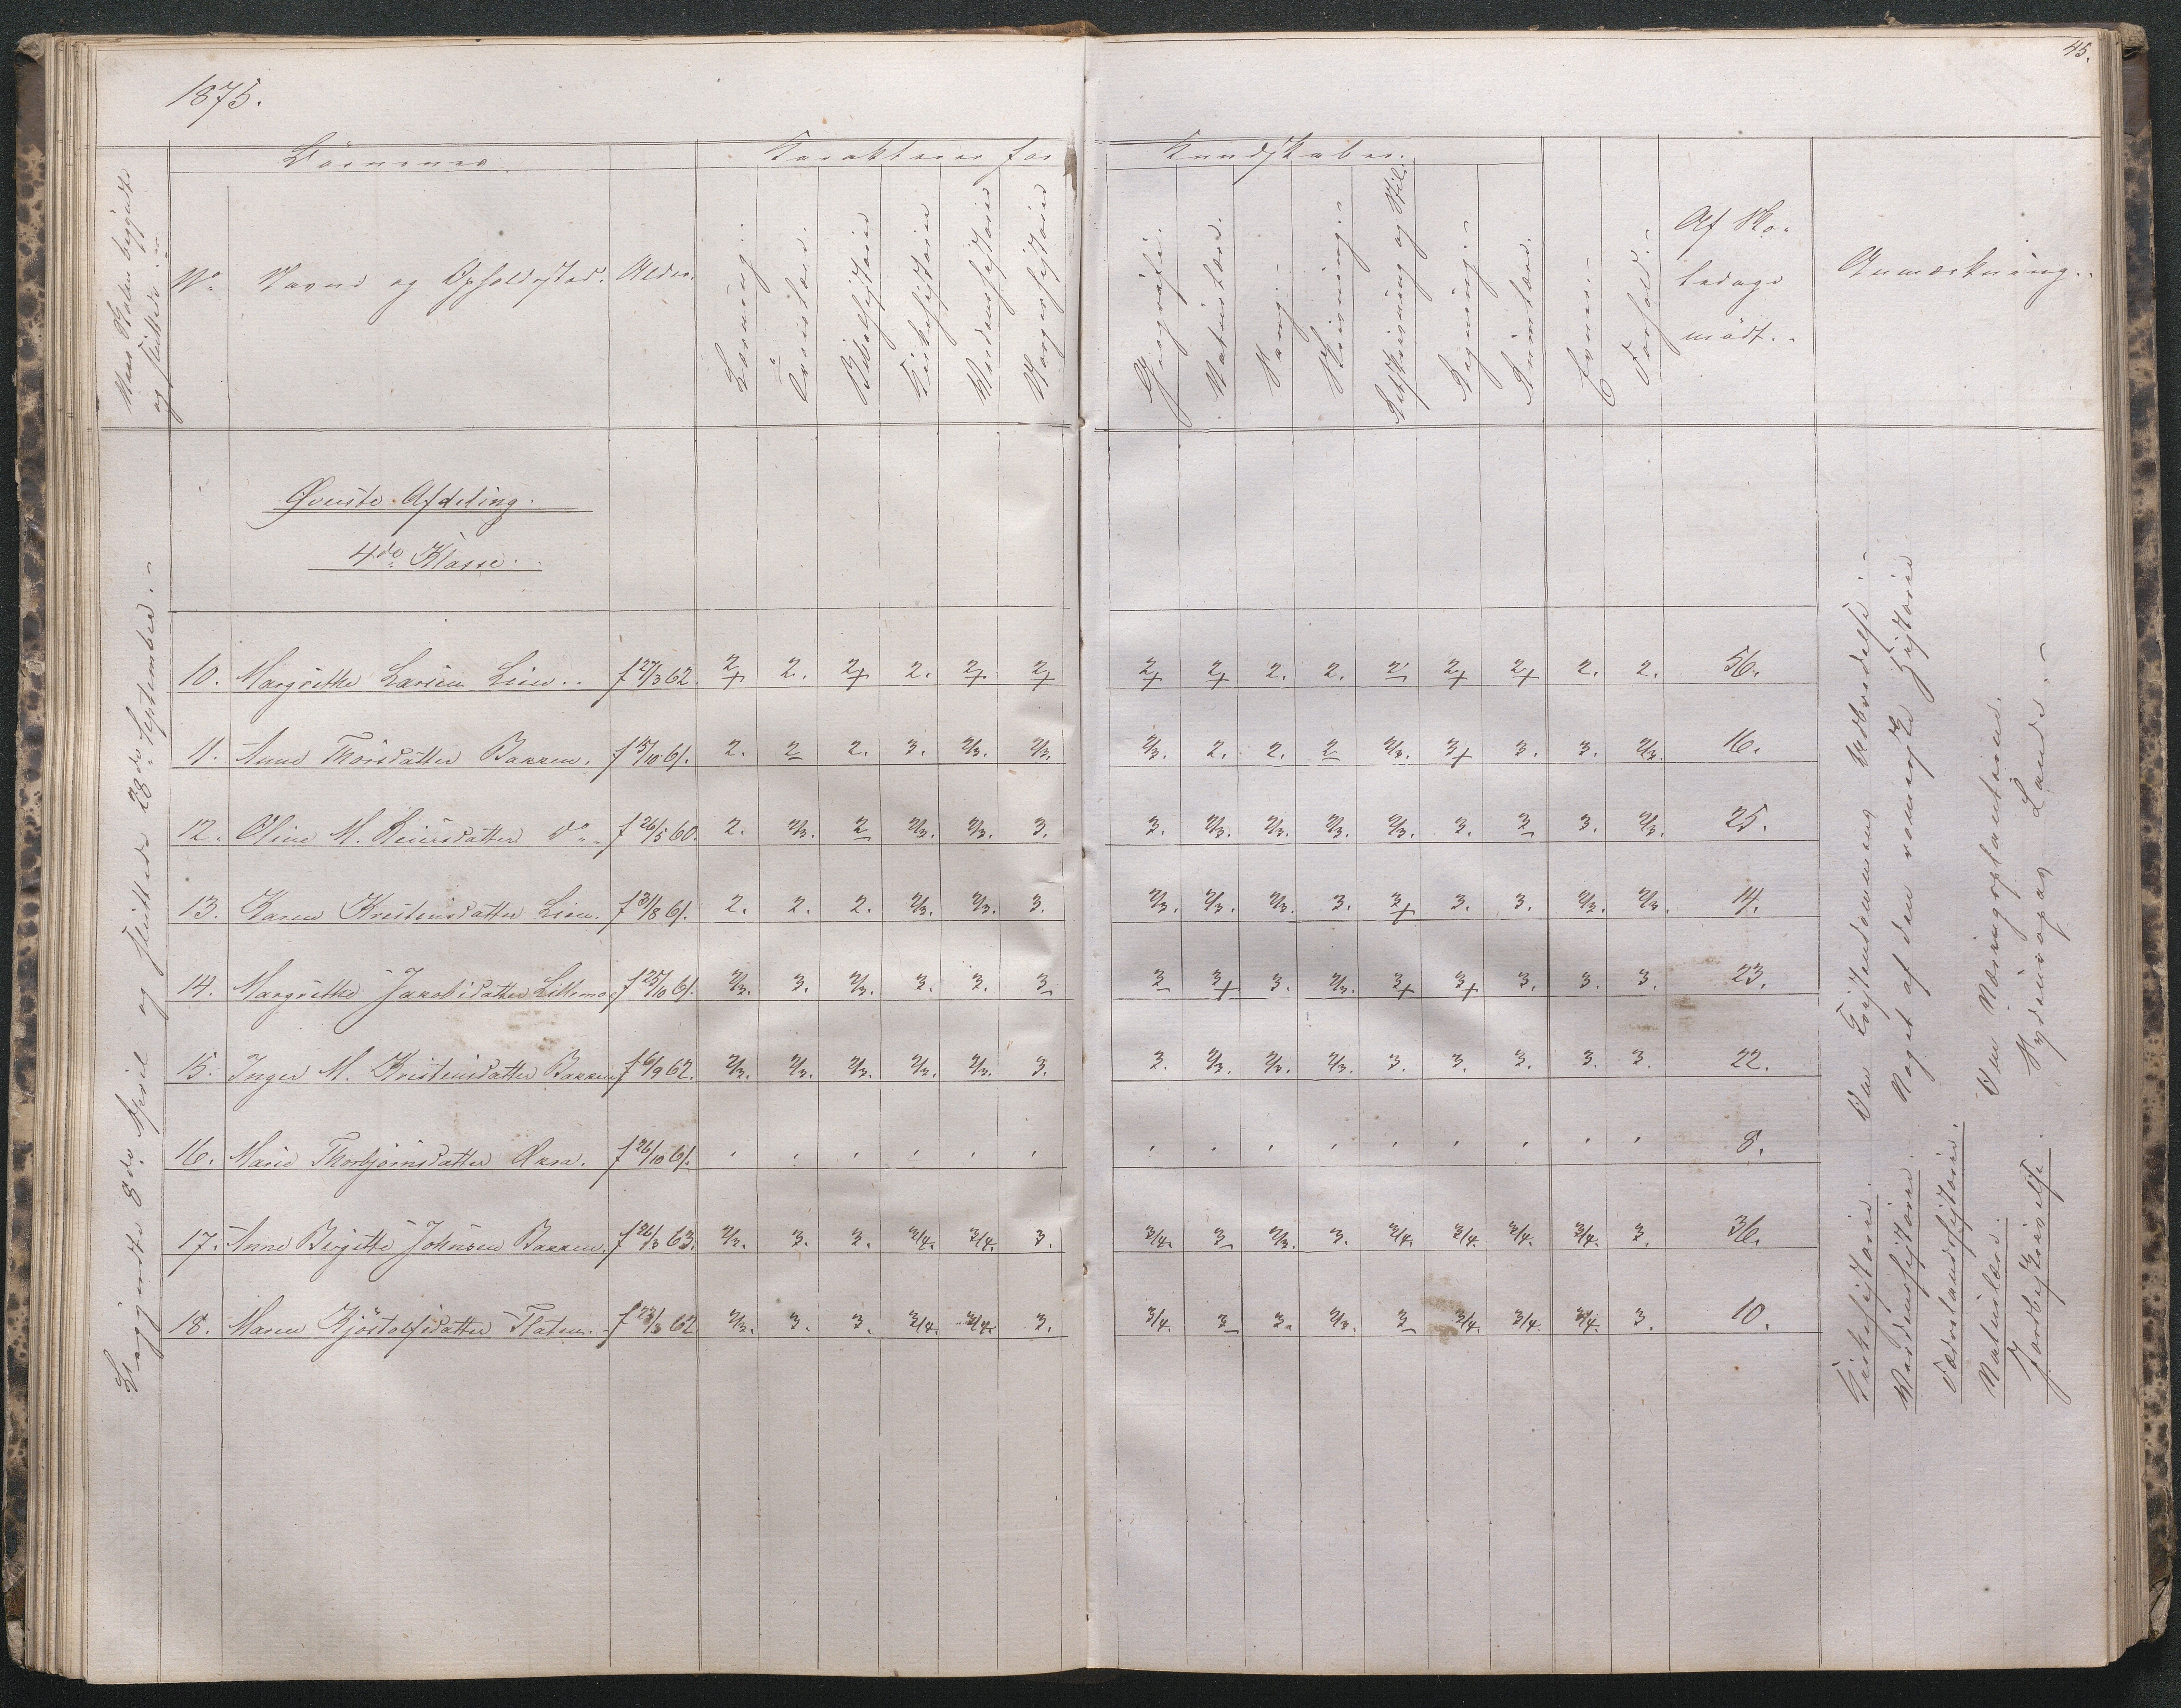 1875.
45.
Naar Skolen begyndte
og sluttede.
Börnenes
Karakterer for
Kundskaber.
No
Navne og Opholdssted.
Alder.
Læsning.
Troeslære.
Bibelhistorie
Kirkehistorie
Verdenshistorie
Norgeshistorie
Geografi.
Naturlære.
Sang.
Skrivning.
Retskrivning og Stil.
Regning.
Rumlære.
Evner.
Forhold.
Af Sko-
ledage
mödt.
Anmærkning.
Begyndte 8de April og sluttede 28de September.
Øverste Afdeling.
4de Klasse.
10. Margrethe Larsen Lien. f 27/3 62. 2+ 2. 2+ 2. 2+ 2+ 2+ 2+ 2. 2. 2 2+ 2+ 2. 2. 56.
11. Anne Thorsdatter Bakken. f 15/10 61. 2. 2 2. 3. 2/3. 2/3. 2/3. 2. 2. 2 2/3. 3+ 3. 3. 2/3. 16.
12. Oline M. Reiersdatter do f 26/5 60. 2. 2/3. 2 2/3. 2/3. 3. 3. 2/3. 2/3. 2/3. 2/3. 3. 3 3. 2/3. 25.
13. Karen Kristensdatter Lien. f 31/8 61. 2. 2. 2. 2/3. 2/3. 3. 2/3. 2/3. 2/3. 3. 3+ 3. 3. 2/3. 2/3. 14.
14. Margrethe Jakobsdatter Lillemo f 25/10 61. 2/3. 3. 2/3. 3. 3. 3 3 3+ 3. 2/3. 3+ 3+ 3. 3. 3. 23.
15. Inger M. Kristensdatter Bakken f 6/9 62. 2/3. 2/3. 2/3. 2/3. 2/3. 3. 3. 2/3. 2/3. 2/3. 3. 3. 3. 3. 3. 22.
16. Marie Thorbjörnsdatter Øxra. f 26/10 61. 8.
17. Anne Birgitte Johnsen Bakken. f 26/3 63. 2/3. 3. 3. 3/4. 3/4. 3. 3/4. 3 2/3. 3. 3/4. 3/4. 3/4. 3/4. 3. 36.
18. Maren Kjöstolfsdatter Flaten. f 23/3 62. 2/3. 3. 3. 3/4. 3/4. 3. 3/4. 3 3. 2/3. 3 3/4. 3/4. 3/4. 3. 10.
Kirkehistorie. Om Kristendommens Udbredelse.
Verdenshistorie. Noget af den romerske Historie
Fædrelandshistorie.
Naturlære. Om Næringsplanterne.
Jordbeskrivelse. Sydeuropas Lande.